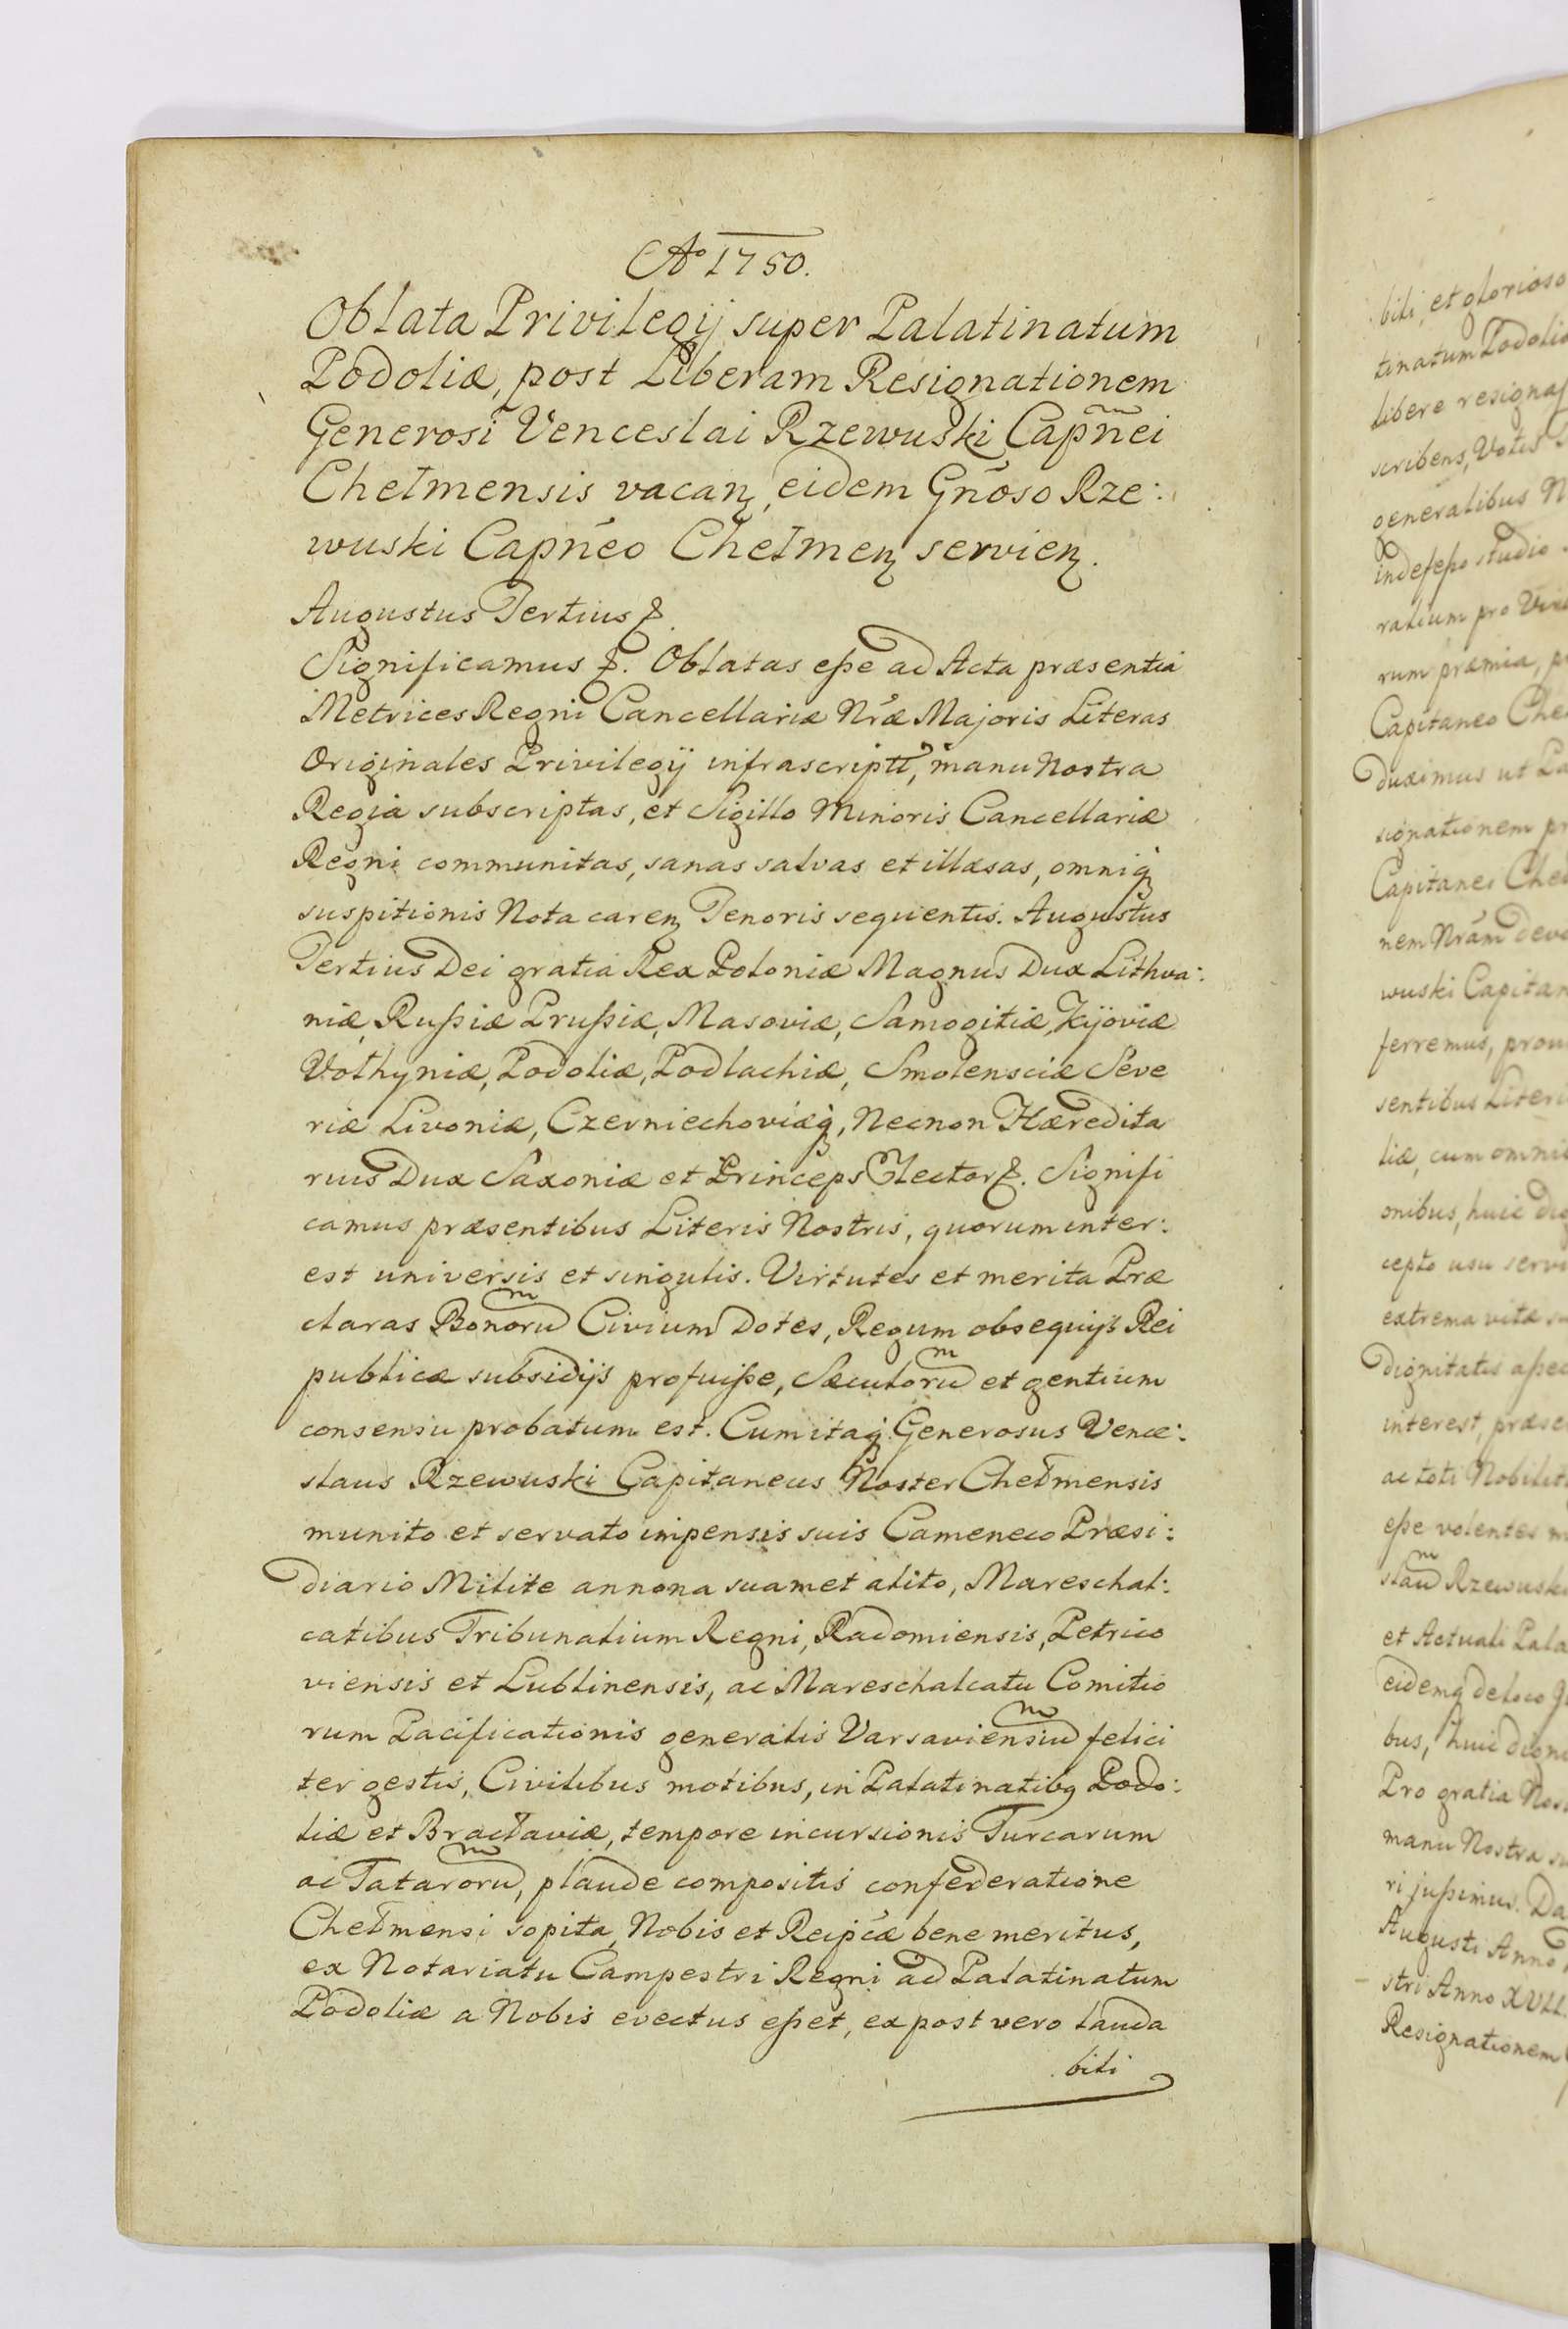 Aᵒ 1750.
Oblata Privilegij super Palatinatum
Podoliæ, post Liberam Resignationem
Generosi Venceslai Rzewuski Capñei
Chełmensis vacanꝫ, eidem Gnõso Rze:
wuski Capnẽo Chełmenꝫ servienꝫ.
Augustus Tertius &.
Significamus &. Oblatas eße ad Acta præsentia
Metrices Regni Cancellariæ Nræ Majoris Literas
Originales Privilegij infrascripti, manu Nostra
Regia subscriptas, et Sigillo Minoris Cancellariæ
Regni communitas, sanas salvas et illæsas, omniq
suspitionis Nota carenꝫ Tenoris sequentis. Augustus
Tertius Dei gratia Rex Poloniæ Magnus Dux Lithva:
niæ, Rußiæ Prußiæ, Masoviæ, Samogitiæ, Kijoviæ
Volhyniæ, Podoliæ, Podlachiæ, Smolensciæ Seve
riæ Livoniæ, Czerniechoviæq, Necnon Hæredita
rius Dux Saxoniæ et Princeps Elector &. Signifi
camus præsentibus Literis Nostris, quorum inter:
est universis et singulis. Virtutes et merita Præ
claras Bonorum Civium Dotes, Regum obsequijs Rei
publicæ subsidijs profuiße, Sæculorum et gentium
consensu probatum est. Cum itaq Generosus Vence:
slaus Rzewuski Capitaneus Noster Chełmensis
munito et servato impensis suis Cameneco Præsi:
diario Milite annona suamet alito, Mareschal:
catibus Tribunalium Regni, Radomiensis, Petrico
viensis et Lublinensis, ac Mareschalcatu Comitio
rum Pacificationis generalis Varsaviensium felici
ter gestis, Civilibus motibus, in Palatinatibq Podo:
liæ et Bracłaviæ, tempore incursionis Turcarum
ac Tatarorum, plaude compositis confederatione
Chełmensi sopita, Nobis et Reipcæ bene meritus,
ex Notariatu Campestri Regni ad Palatinatum
Podoliæ a Nobis evectus eßet, ex post vero lauda
bili
bili, et glorioso
tinatum Podoliæ
libere resignaß
scribens, Votis
generalibus N
indefeßo studio
ratium pro
rum præmia,
Capitaneo Che
duximus ut Pa
signationem pr
Capitanei Cheł
nem Nram deve
wuski Capitan
ferremus, prou
sentibus Literi
liæ, cum omni
onibus, huic dig
cepto usu servi
extrema vitæ
Dignitatis aßec
interest, præse
ac toti Nobilit
eße volentes
slaum Rzewuski
et Actuali Pala
eidemq de loco
bus, huic digni
Pro gratia Nos
manu Nostra su
ri jußimus. Da
Augusti Anno
stri Anno XVII.
Resignationem